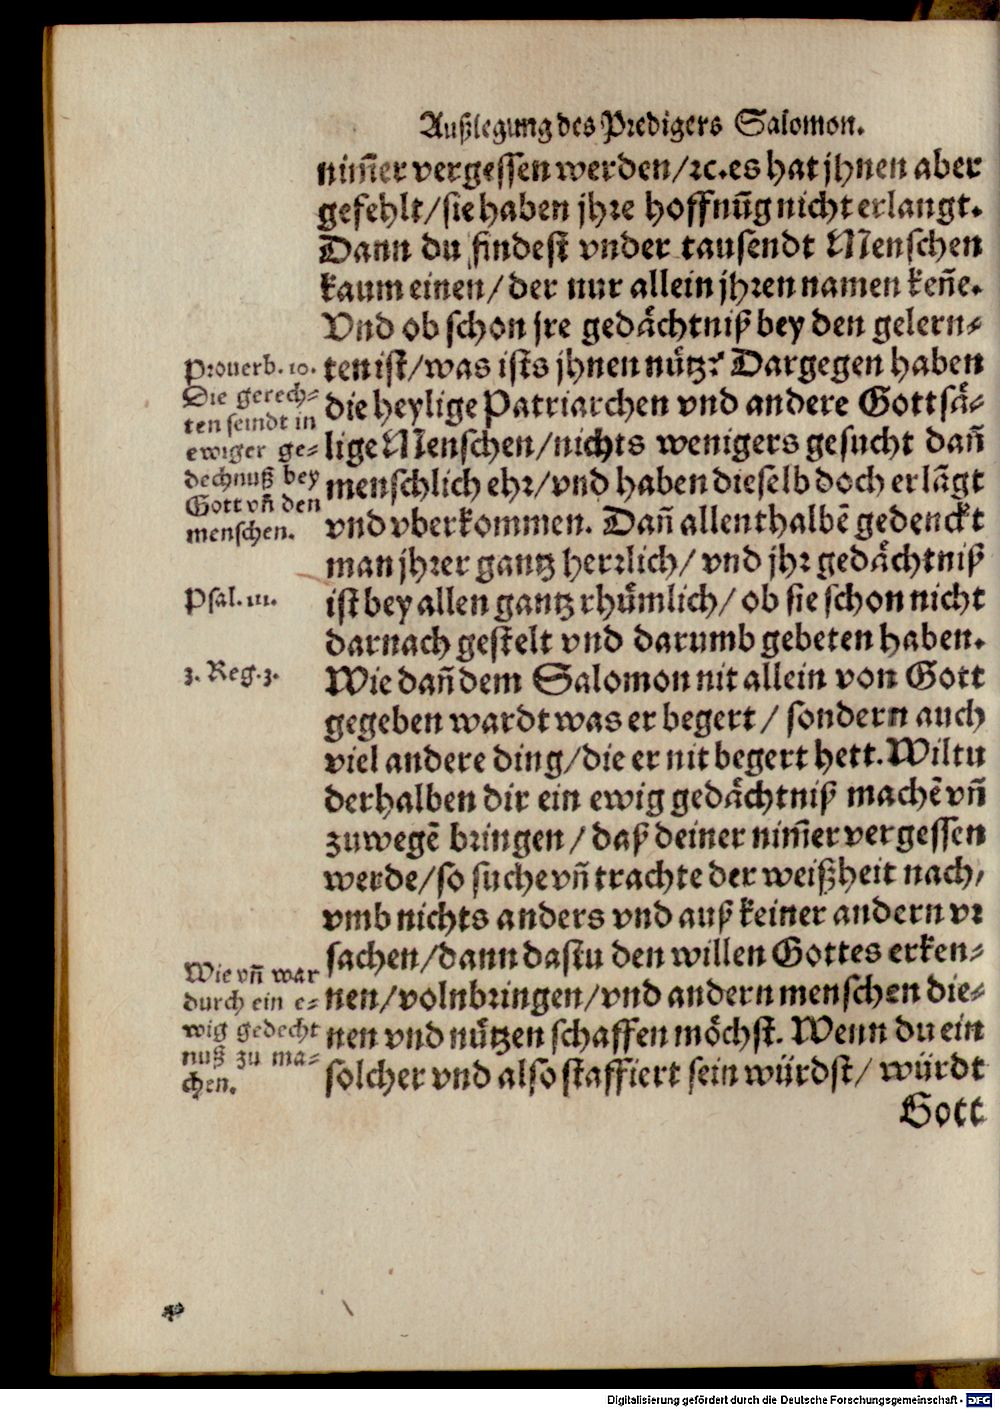 Außlegung des Predigers Salomon.
nim̃er vergessen werden/ ꝛc. es hat jhnen aber
gefehlt/ sie haben jhre hoffnũg nicht erlangt.
Dann du findest vnder tausendt Menschen
kaum einen/ der nur allein jhren namen keñe.
Vnd ob schon jre gedaͤchtniß bey den gelern⸗
ten ist/ was ists jhnen nuͤtz? Dargegen haben
die heylige Patriarchen vnd andere Gottsaͤ⸗
lige Menschen/ nichts wenigers gesucht dañ
menschlich ehr/ vnd haben dieselb doch erlãgt
vnd vberkommen. Dañ allenthalbẽ gedenckt
man jhrer gantz herrlich/ vnd jhr gedaͤchtniß
ist bey allen gantz rhuͤmlich/ ob sie schon nicht
darnach gestelt vnd darumb gebeten haben.
Wie dañ dem Salomon nit allein von Gott
gegeben wardt was er begert / sondern auch
viel andere ding/ die er nit begert hett. Wiltu
derhalben dir ein ewig gedaͤchtniß machẽ vñ
zuwegẽ bringen / daß deiner nim̃er vergessen
werde/ so suche vñ trachte der weißheit nach/
vmb nichts anders vnd auß keiner andern vr
sachen/ dann dastu den willen Gottes erken⸗
nen/ volnbringen/ vnd andern menschen die⸗
nen vnd nuͤtzen schaffen moͤchst. Wenn du ein
solcher vnd also staffiert sein wuͤrdst/ wuͤrdt
Gott
Prouerb. 10.
Die gerech⸗
ten seindt in
ewiger ge⸗
dechnuß bey
Gott vñ den
menschen.
Psal. 111.
3. Reg. 3.
Wie vñ war
durch ein e⸗
wig gedecht
nuß zu ma⸗
chen.
Digitalisierung gefördert durch die Deutsche Forschungsgemeinschaft - DFG